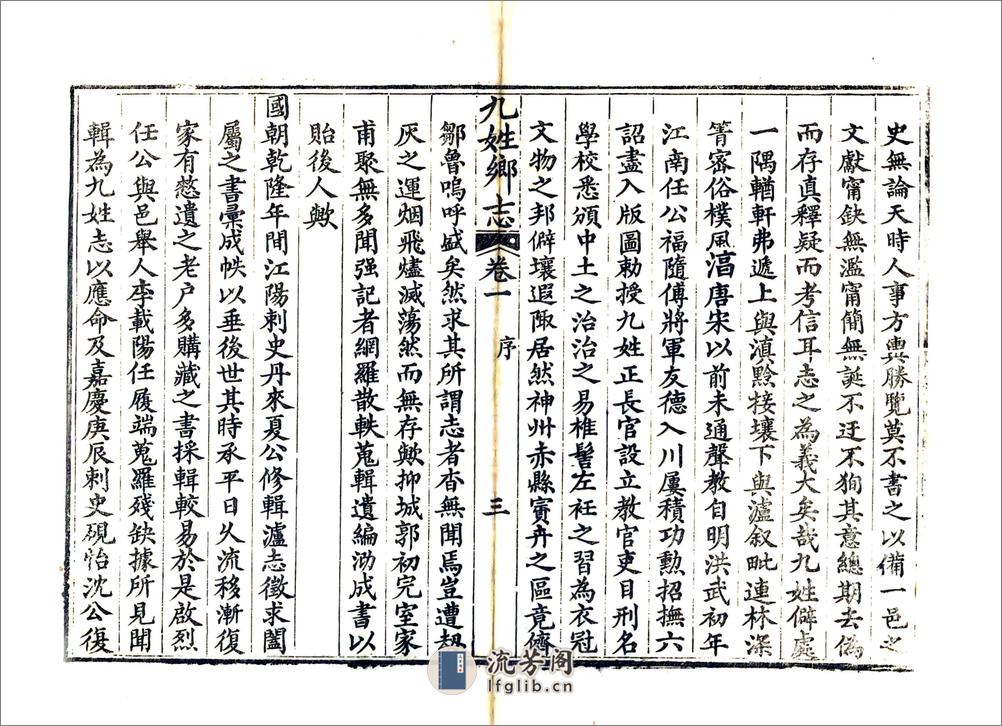 史無論天時人事方輿勝覽莫不書之以備一邑之
文獻甯缺無濫甯簡無誕不迂不狥其意總期去偽
而存真釋疑而考信耳志之為義大矣哉九姓僻處
一隅輶軒弗遞上與滇黔接壤下與瀘叙毗連林深
箐密俗樸風淆唐宋以前未通聲教自明洪武初年
江南任公福隨傅將軍友德入川屢積功勳招撫六
詔盡入版圖勅授九姓正長官設立教官吏目刑名
學校悉頒中土之治治之易椎髻左衽之習為衣冠
文物之邦僻壤遐陬居然神州赤縣賓舟之區竟儕
九姓鄉志 卷一 序 三
鄒魯嗚呼盛矣然求其所謂志者杳無聞焉豈遭刧
灰之運烟飛燼滅蕩然而無存歟抑城郭初完室家
甫聚無多聞强記者網羅散軼蒐輯遺編泐成書以
貽後人歟
國朝乾隆年間江陽刺史丹來夏公修輯瀘志徵求闔
屬之書彙成帙以垂後世其時承平日久流移漸復
家有憗遺之老户多購藏之書採輯較易於是啟烈
任公與邑舉人李載陽任履端蒐羅殘缺據所見聞
輯為九姓志以應命及嘉慶庚辰刺史硯怡沈公復
流芳閣
lfglib.cn